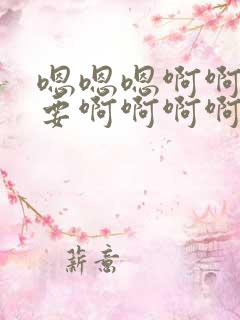 嗯嗯嗯啊啊
要啊啊啊啊
薪意